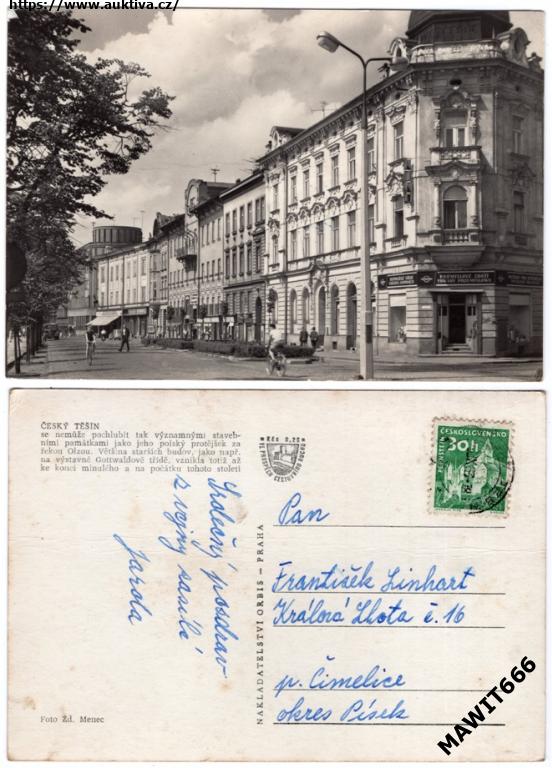 https://www.auktiva.cz/
ČESKÝ TĚŠÍN
se nemůže pochlubit tak významnými staveb-
ními památkami jako jeho polský protějšek za
řekou Olzou. Většina starších budov, jako např.
na výstavné Gottwaldově třídě, vznikla totiž až
ke konci minulého a na počátku tohoto století
Kčs 0,20
VE PROSPĚCH CESTOVNÍHO RUCHU
ČESKOSLOVENSKO
30h
PERNŠTEJN
Srdečný pozdrav
z vojny zasílá
Jarda
NAKLADATELSTVÍ ORBIS – PRAHA
Pan
František Linhart
Králová Lhota č. 16
p. Čimelice
okres Písek
Foto Zd. Menec
MAWIT666